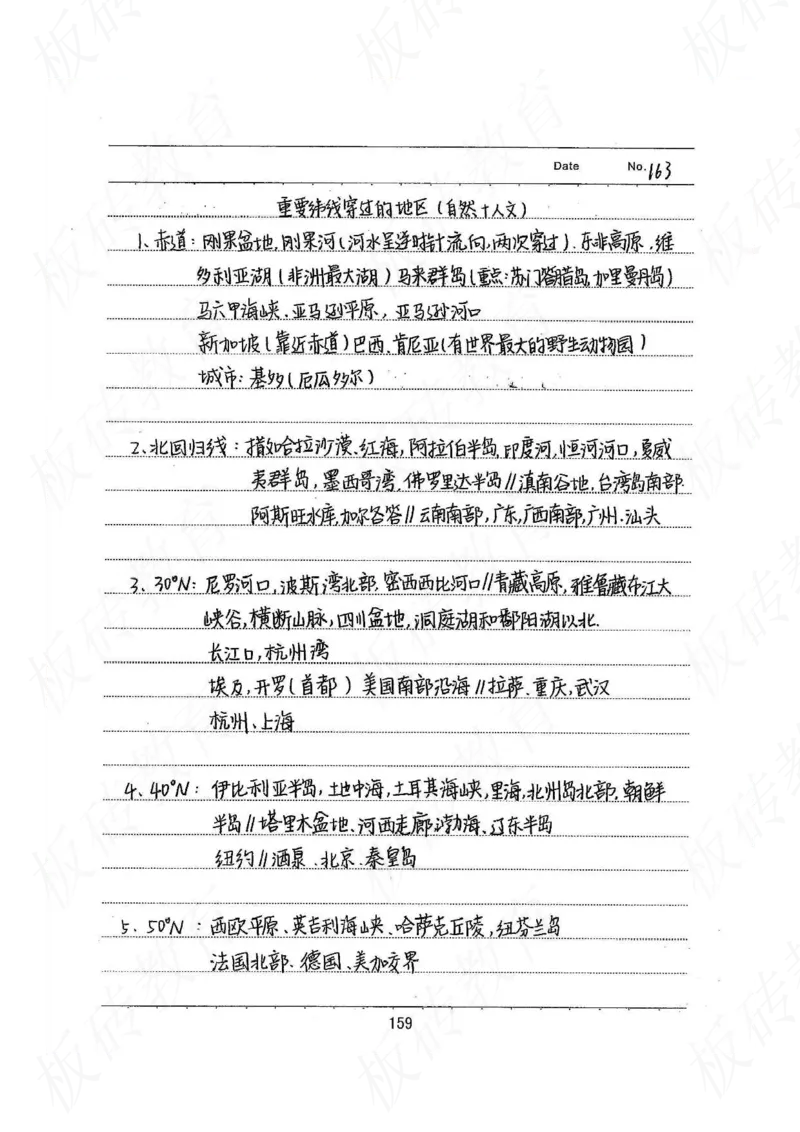 Date No. 163
重要纬线穿过的地区(自然+人文)
1、赤道:刚果盆地,刚果河(河水呈逆时针流向,两次穿过).东非高原、维
多利亚湖(非洲最大湖)马来群岛(重点:苏门答腊岛,加里曼丹岛)
马六甲海峡、亚马逊平原,亚马逊河口
新加坡(靠近赤道)巴西、肯尼亚(有世界最大的野生动物园)
城市:基多(厄瓜多尔)
2、北回归线:撒哈拉沙漠、红海,阿拉伯半岛,印度河,恒河河口,夏威
夷群岛,墨西哥湾,佛罗里达半岛//滇南谷地,台湾岛南部
阿斯旺水库,加尔各答//云南南部,广东,广西南部,广州、汕头
3、30°N:尼罗河口,波斯湾北部,密西西比河口//青藏高原,雅鲁藏布江大
峡谷,横断山脉,四川盆地,洞庭湖和鄱阳湖以北.
长江口,杭州湾
埃及,开罗(首都) 美国南部沿海//拉萨、重庆,武汉
杭州、上海
4、40°N:伊比利亚半岛,地中海,土耳其海峡,里海,北州岛北部,朝鲜
半岛//塔里木盆地、河西走廊、渤海、辽东半岛
纽约//酒泉、北京、秦皇岛
5.50°N:西欧平原、英吉利海峡、哈萨克丘陵,纽芬兰岛
法国北部、德国、美加交界
159
板砖教育